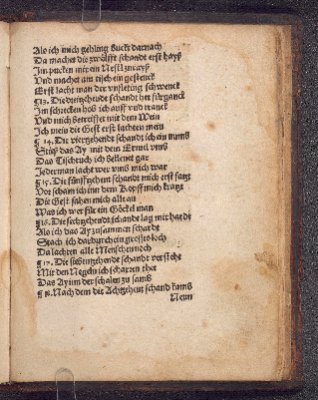 Als ich mich gehling buckt darnach
Da machet die zwölfft schandt erst hayß
Im pucken mir ein Nestl zurayß
Vnd machet am tisch ein gestenck
Erst lacht man der vnfleting schwenck
¶ 13. Die dreitzehendt schandt her fürganck
Im schrecken hub ich auff vnd ranck
Vnd mich betreiffet mit dem Wein
Ich mein die Gest erst lachten mein
¶ 14. Die viertzehendt schandt ich ein nams
Stieß das Ay mit dem Ermel vmb
Das Tischtuch ich beklenet gar
Jederman lacht wer vmb mich war
¶ 15. Die fünfftzehent schandt mich erst
Vor scham ich inn dem Kopff mich kratzt
Die Gest sahen mich alle an
Was ich wer für ein Göckel man
¶ 16. Die sechtzehendt schandt lag mir hardt
Als ich das Ay zusammen schardt
Stach ich dardurch ein groß loch
Da lachten alle Menschen noch
¶ 17. Die siebentzehendt schandt versteht
Mit den Negeln ich scharren thet
Das Ay inn der schalen zu sams
¶ 18. Nach dem die Achtzehent schand kams
Nenn